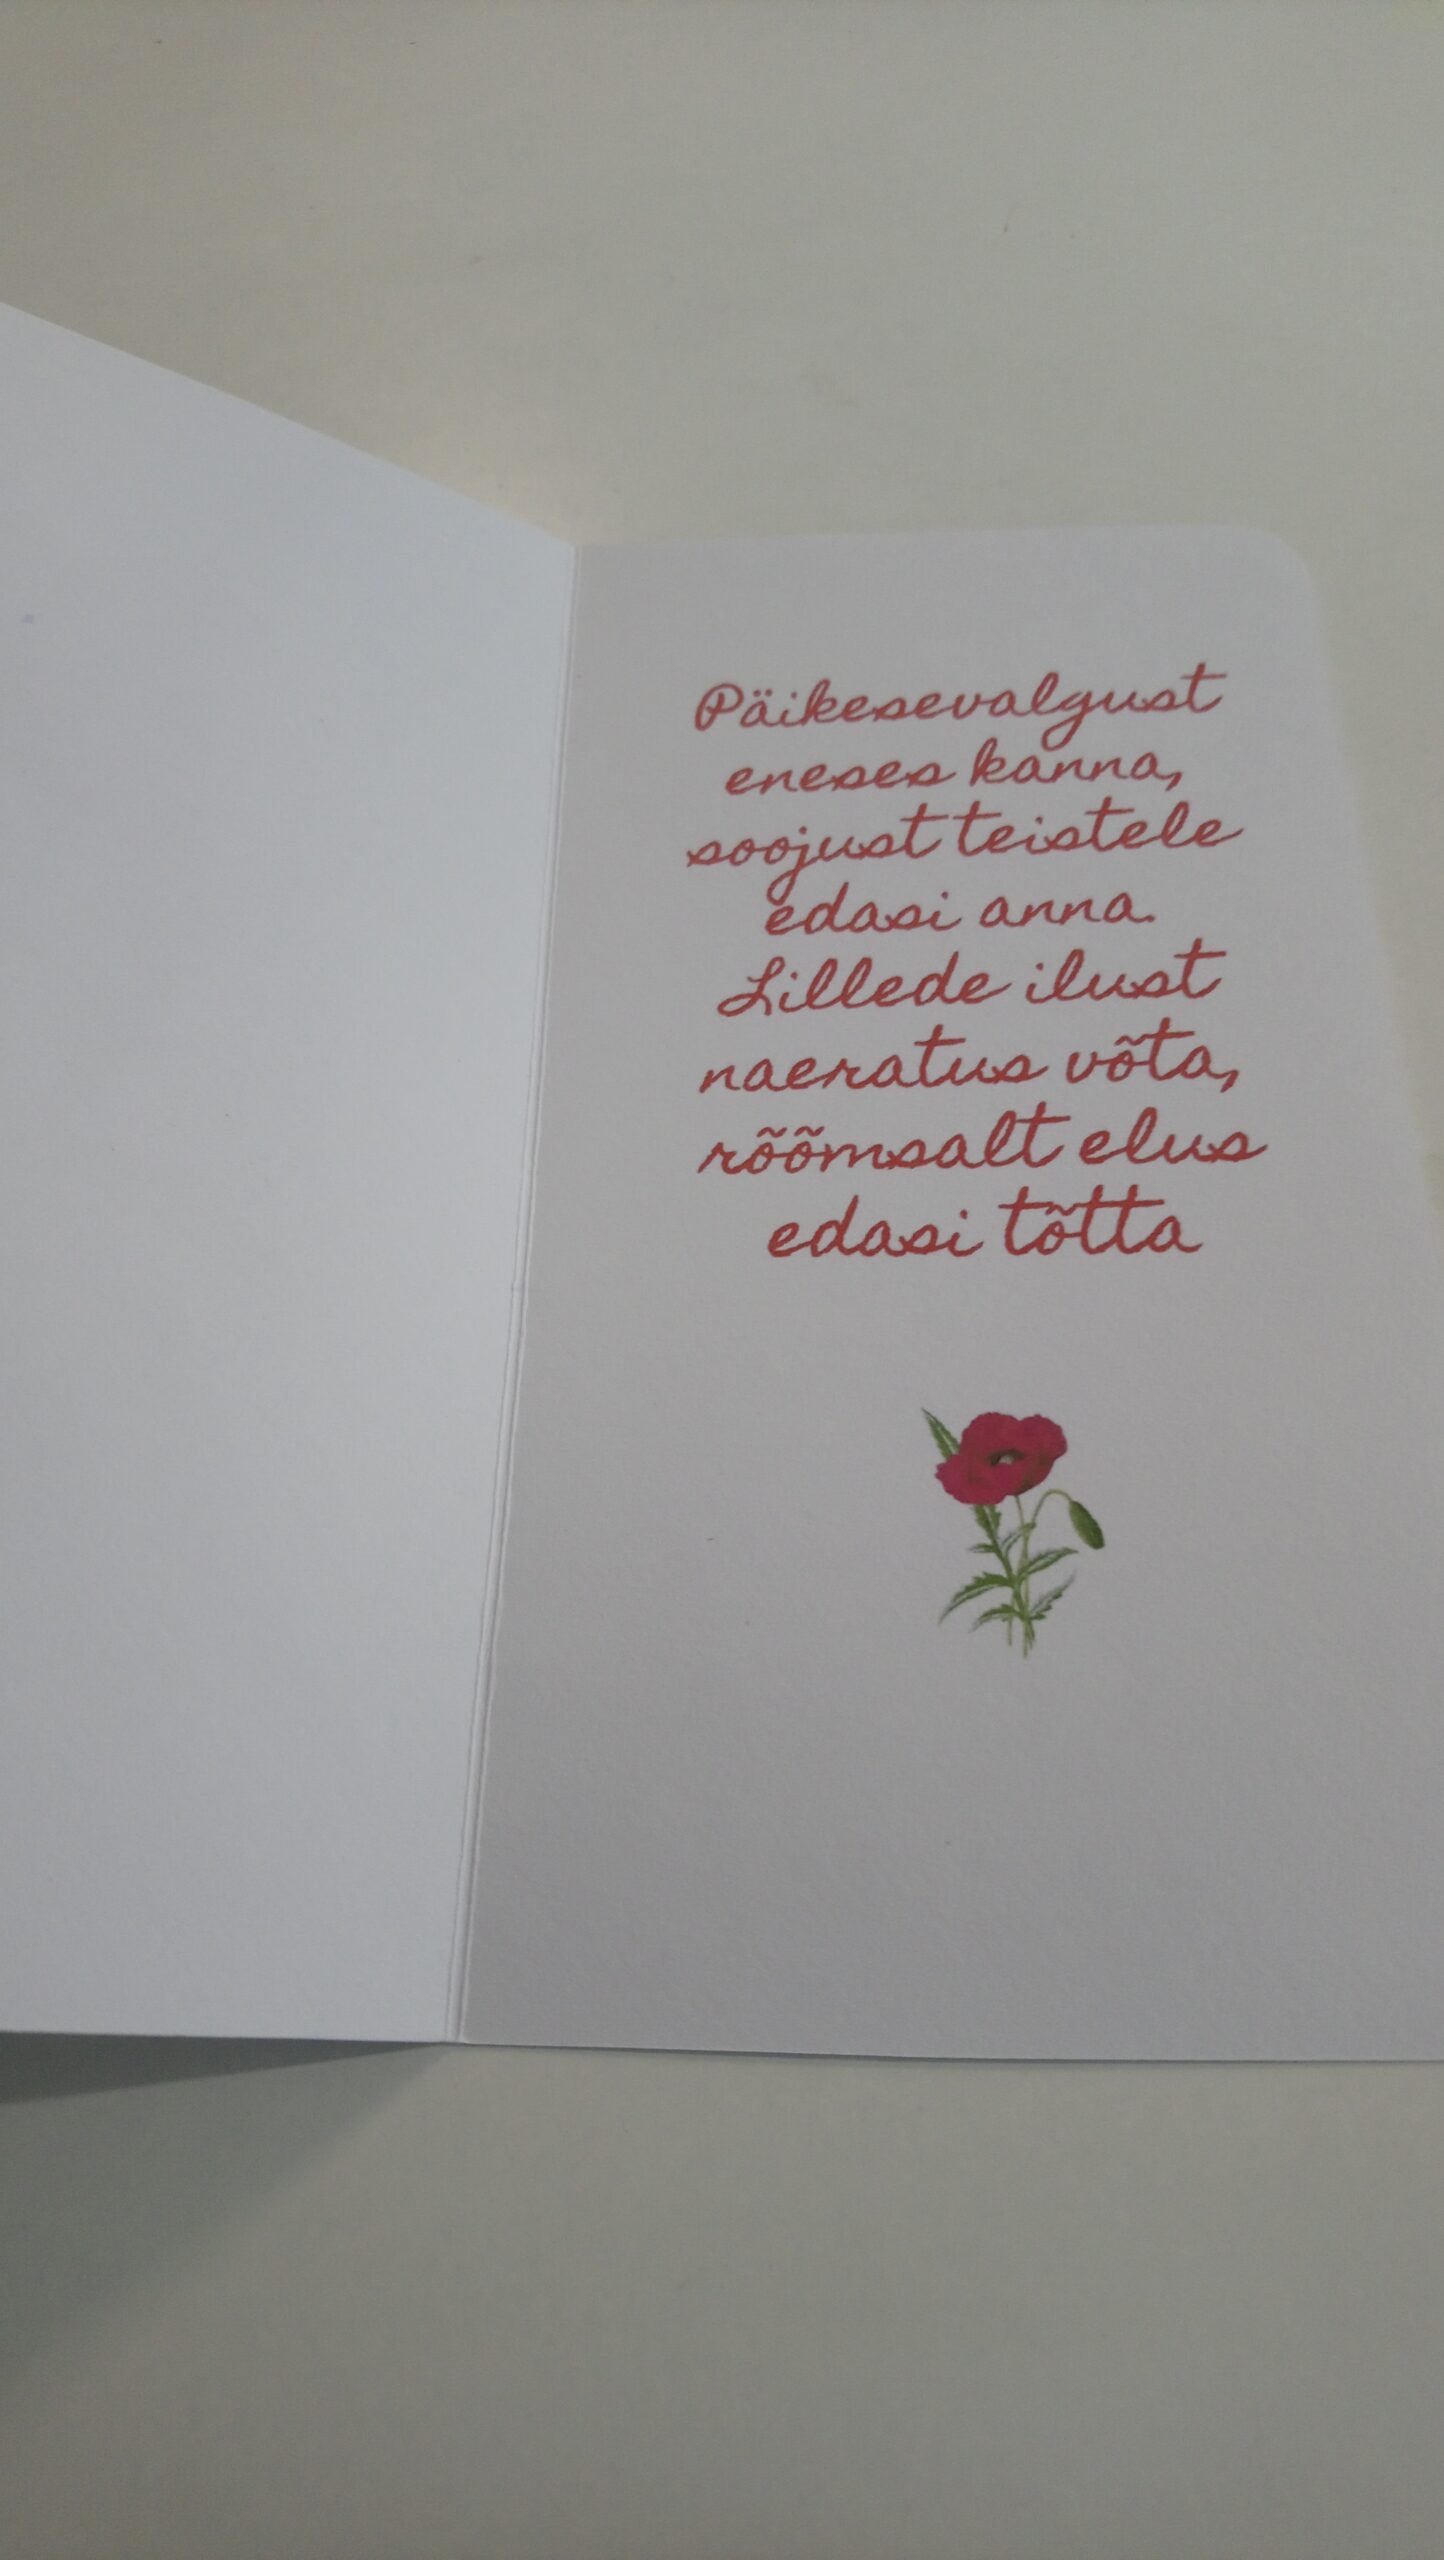 Päikesevalgust
eneses kanna,
soojust teistele
edasi anna.
Lillede ilust
naeratus võta,
rõõmsalt elus
edasi tõtta